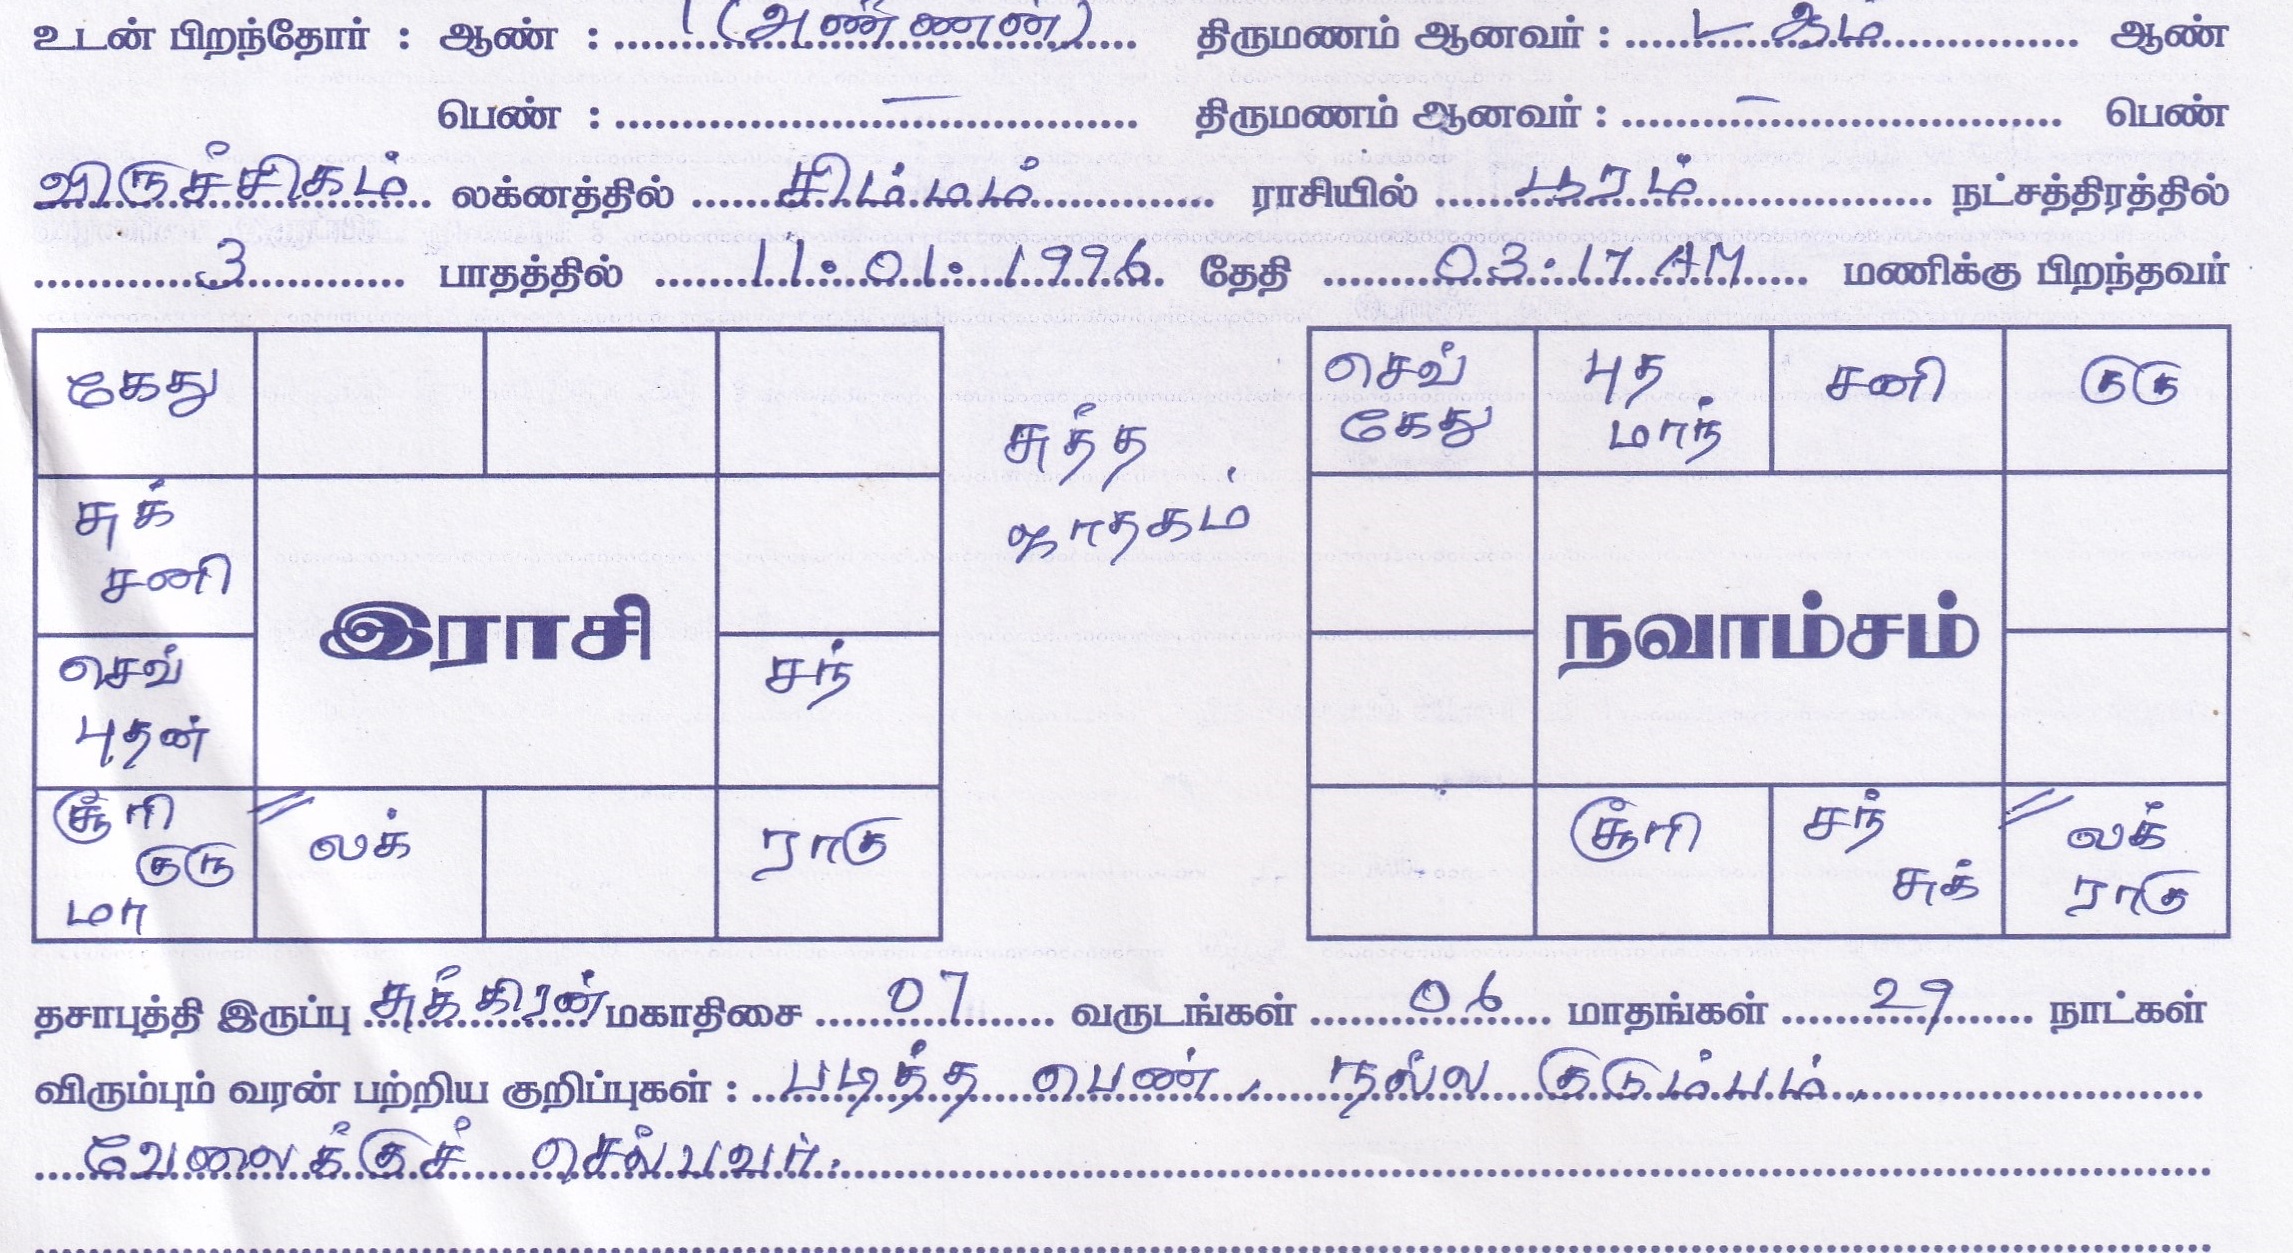 உடன் பிறந்தோர் : ஆண் : 1 (அண்ணன்) திருமணம் ஆனவர் : ஆம் ஆண்
பெண் : — திருமணம் ஆனவர் : — பெண்
விருச்சிகம் லக்னத்தில் சிம்மம் ராசியில் பூரம் நட்சத்திரத்தில்
3 பாதத்தில் 11.01.1996 தேதி 03.17 AM மணிக்கு பிறந்தவர்
கேது
சுக்
சனி
செவ்
புதன்
இராசி
சந்
சூரி
குரு
மா
லக்
ராகு
சுத்த
ஜாதகம்
செவ்
கேது
புத
மாந்
சனி
குரு
நவாம்சம்
சூரி
சந்
சுக்
லக்
ராகு
தசாபுத்தி இருப்பு சுக்கிரன் மகாதிசை 07 வருடங்கள் 06 மாதங்கள் 29 நாட்கள்
விரும்பும் வரன் பற்றிய குறிப்புகள் : படித்த பெண், நல்ல குடும்பம்,
வேலைக்குச் செல்பவர்.